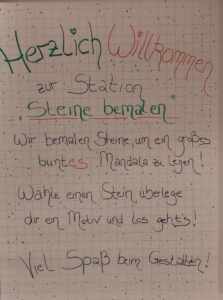 Herzlich Willkommen
zur Station
"Steine bemalen"
Wir bemalen Steine, um ein großes
buntes Mandala zu legen!
Wähle einen Stein, überlege
dir ein Motiv und los geht's!
Viel Spaß beim Gestalten!